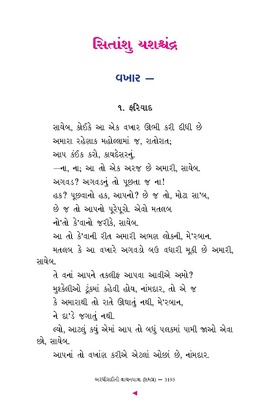 સિતાંશુ યશશ્ચંદ્ર
વખાર —
૧. ફરિયાદ
સાયેબ, કોઈકે આ એક વખાર ઊભી કરી દીધી છે
અમારા રહેણાક મહોલ્લામાં જ, રાતોરાત;
આપ કંઈક કરો, કાયદેસરનું.
—ના, ના; આ તો એક અરજ છે અમારી, સાયેબ.
અગવડ? અગવડનું તો પૂછતા જ ના!
હક? પૂછવાનો હક, આપનો? છે જ તો, મોટા સા'બ,
છે જ તો આપનો પૂરેપૂરો. એવો મતલબ
નો'તો કે'વાનો જરીકે, સાયેબ.
આ તો કે'વાની રીત અમારી અભણ લોકની, મે'રબાન.
મતલબ કે આ વખારે અગવડો બઉ વધારી મૂકી છે અમારી,
સાયેબ.
તે વનાં આપને તકલીફ આપવા આવીએ અમો?
મુશ્કેલીઓ ટૂંકમાં કહેવી હોય, નાંમદાર, તો એ જ
કે અમારાથી તો રાતે ઊંઘાતું નથી, મે'રબાન,
ને દા'ડે જગાતું નથી.
લ્યો, આટલું કયું એમાં આપ તો બધું પલકમાં પામી જાઓ એવા
છો, સાયેબ.
આપનાં તો વખાંણ કરીએ એટલાં ઓછાં છે, નાંમદાર.
3193